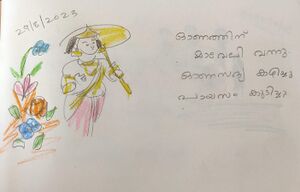 29/8/2023
ഓണത്തിന്
മാവേലി വന്നു
ഓണസദ്യ കഴിച്ചു
പായസം കുടിച്ചു